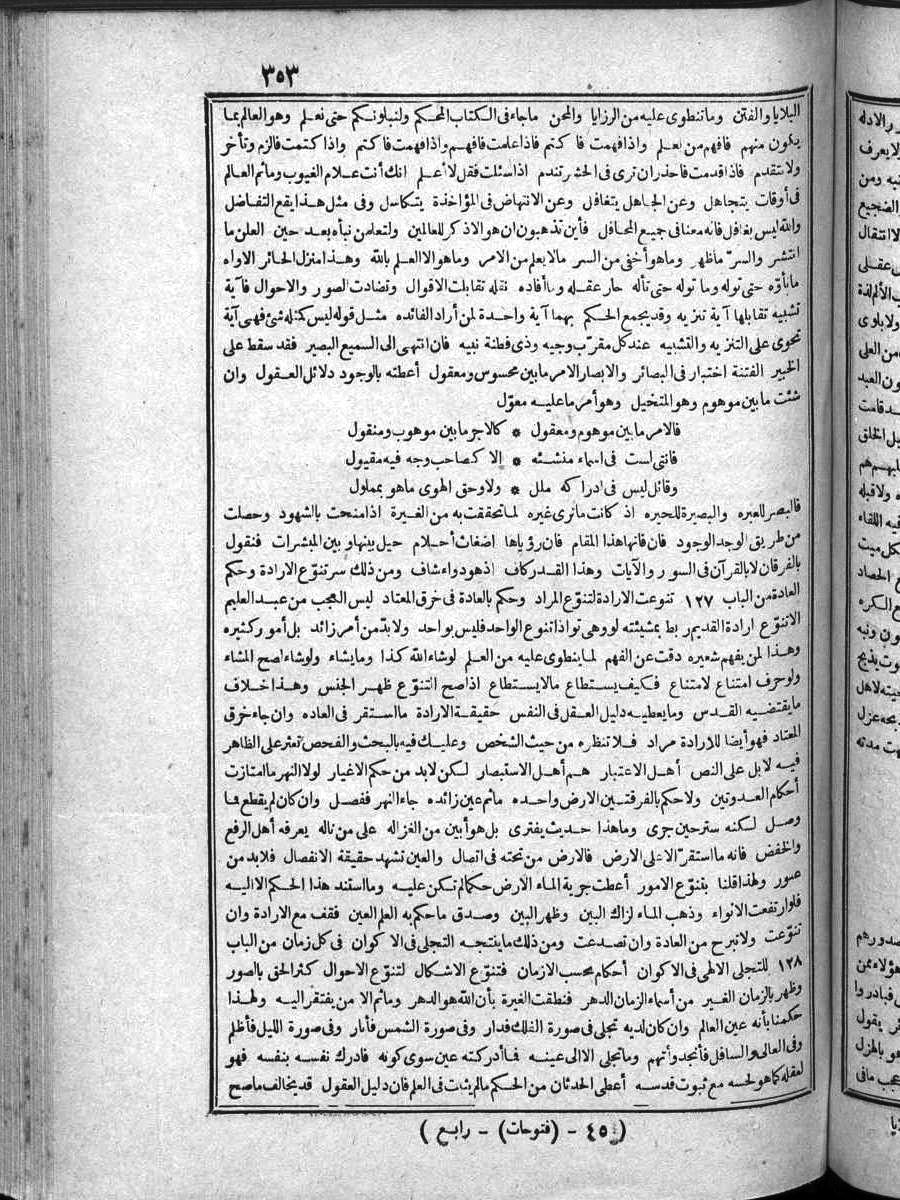 ٣٥٣
البلايا والفتن وما تنطوى عليه من الرزايا والمحن ما جاء فى الكتاب المحكم ولنبلونكم حتى نعلم وهو العالم بما
يكون منهم فافهم من يعلم واذا فهمت فاكتم فاذا علمت فافهم واذا فهمت فاكتم واذا كتمت فالزم وتأخر
ولا تتقدم فاذا قدمت فاحذر ان ترى فى الحشر تندم اذا سئلت فقل لا أعلم انك أنت علام الغيوب وما ثم العالم
فى أوقات يتجاهل وعن الجاهل يتغافل وعن الانتهاض فى المؤاخذة يتكاسل وفى مثل هذا يقع التفاضل
والله ليس بغافل فانه معنا فى جميع المحافل فأين تذهبون ان هو الا ذكر للعالمين ولتعلمن نبأه بعد حين العلن ما
انتشر والسر ما ظهر وما هو أخفى من السر مالا يعلم من الامر وما هو الا العلم بالله وهذا منزل الحائر الاواه
ما تأوّه حتى توله وما توله حتى تأله حار عقله وما أفاده نقله تقابلت الاقوال وتضادت الصور والاحوال فآية
تشبيه تقابلها آية تنزيه وقد يجمع الحكم بهما آية واحدة لمن أراد الفائده مثل قوله ليس كمثله شئ فهى آية
تحوى على التنزيه والتشبيه عند كل مقرّب وجيه وذى فطنة نبيه فان انتهى الى السميع البصير فقد سقط على
الخبير الفتنة اختبار فى البصائر والابصار الامر ما بين محسوس ومعقول أعطته بالوجود دلائل العقول وان
شئت ما بين موهوم وهو المتخيل وهو أمر ما عليه معوّل
فالامر ما بين موهوم ومعقول * كالاجر ما بين موهوب ومنقول
فانتى لست فى اسماء منشئه * الا كصاحب وجه فيه مقبول
وقائل ليس فى ادراكه ملل * ولا وحق الهوى ما هو بمملول
فالبصر للعبره والبصيرة للحيره اذ كانت ما ترى غيره لما تحققت به من الغيرة اذا منحت بالشهود وحصلت
من طريق الوجد الوجود فان فاتها هذا المقام فان رؤياها اضغاث أحلام حيل بينها وبين المبشرات فنقول
بالفرقان لا بالقرآن فى السور والآيات وهذا القدر كاف اذ هو دواء شاف ومن ذلك سر تنوّع الارادة وحكم
العادة من الباب ١٢٧ تنوعت الارادة لتنوّع المراد وحكم بالعادة فى خرق المعتاد ليس العجب من عبد العليم
الا تنوّع ارادة القديم ربط بمشيئته لو وهى تواذا تنوع الواحد فليس بواحد ولا بدّ من أمر زائد بل أمور كثيره
وهذا لمن يفهم شعيره دقت عن الفهم لما ينطوى عليه من العلم لو شاء الله كذا وما يشاء ولو شاء اصح المشاء
ولو حرف امتناع لامتناع فكيف يستطاع مالا يستطاع اذا صح التنوّع ظهر الجنس وهذا خلاف
ما يقتضيه القدس وما يعطيه دليل العقل فى النفس حقيقة الارادة ما استقر فى العاده وان جاء خرق
المعتاد فهو أيضا للارادة مراد فلا تنظره من حيث الشخص وعليك فيه بالبحث والفحص تعثر على الظاهر
فيه لا بل على النص أهل الاعتبار هم أهل الاستبصار لكن لابد من حكم الاغيار لولا النهر ما امتازت
أحكام العدوتين ولا حكم بالفرقتين الارض واحده ما ثم عين زائده جاء النهر ففصل وان كان لم يقطع مما
وصل لكنه ستر حين جرى وما هذا حديث يفترى بل هو أبين من الغزاله على من ناله يعرفه أهل الرفع
والخفض فانه ما استقرّ الا على الارض فالارض من تحته فى اتصال والعين تشهد حقيقة الانفصال فلا بد من
عبور ولهذا قلنا بتنوّع الامور أعطت جرية الماء الارض حكما لم تكن عليه وما استند هذا الحكم الا اليه
فلو ارتفعت الانواء وذهب الماء لزال البين وظهر البين وصدق ما حكم به العلم العين فقف مع الارادة وان
تنوّعت ولا تبرح من العادة وان تصدعت ومن ذلك ما ينتجه التجلى فى الاكوان فى كل زمان من الباب
١٢٨ للتجلى الالهى فى الاكوان أحكام بحسب الازمان فتنوّع الاشكال لتنوّع الاحوال كثر الحق بالصور
وظهر بالزمان الغير من أسماء الزمان الدهر فنطقت الغيرة بأن الله هو الدهر وما ثم الا من يفتقر اليه ولهذا
حكمنا بأنه عين العالم وان كان لديه تجلى فى صورة الفلك فدار وفى صورة الشمس فأنار وفى صورة الليل فأظلم
وفى العالى والسافل فأنجد وأتهم وما تجلى الا الى عينه فما أدركته عين سوى كونه فادرك نفسه بنفسه فهو
لعقله كما هو لحسه مع ثبوت قدسه أعطى الحدثان من الحكم ما لم يثبت فى العلم فان دليل العقول قد يخالف ما صح
( ٤٥ - (فتوحات) - رابع )